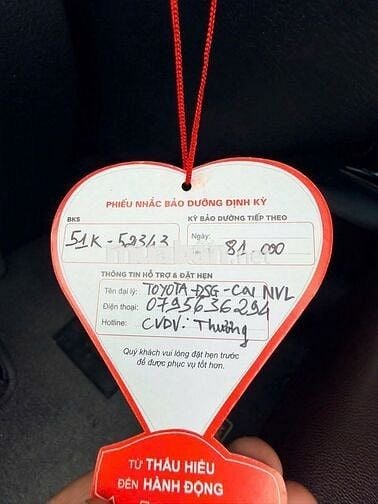 PHIẾU NHẮC BẢO DƯỠNG ĐỊNH KỲ
BKS
51K-52313
KỲ BẢO DƯỠNG TIẾP THEO
Ngày:
81.000
THÔNG TIN HỖ TRỢ & ĐẶT HẸN
Tên đại lý: TOYOTA ĐSG - CN NVL
Điện thoại: 0795636294
Hotline: CVDV: Thưởng
Quý khách vui lòng đặt hẹn trước
để được phục vụ tốt hơn.
TỪ THẤU HIỂU
ĐẾN HÀNH ĐỘNG